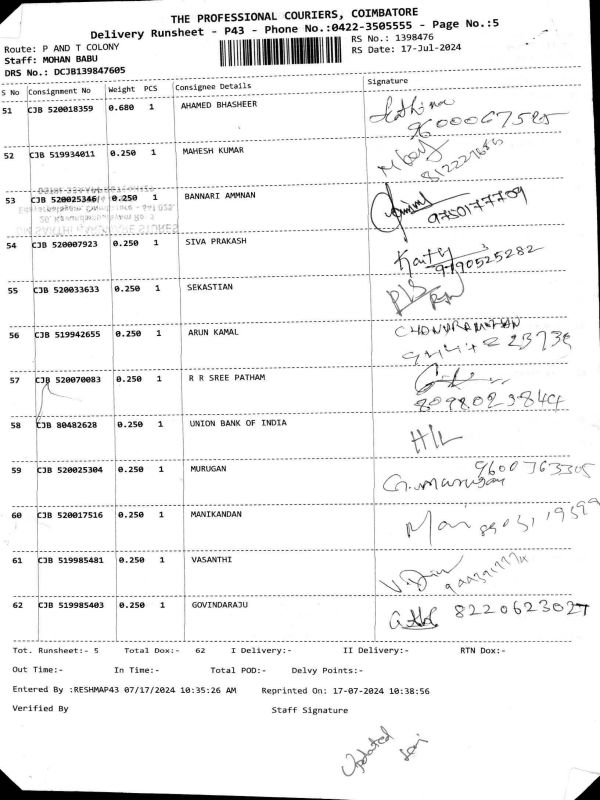 THE PROFESSIONAL COURIERS, COIMBATORE
Delivery Runsheet - P43 - Phone No.:0422-3505555 - Page No.:5
Route: P AND T COLONY
RS No.: 1398476
Staff: MOHAN BABU
RS Date: 17-Jul-2024
DRS No.: DCJB139847605
S No Consignment No Weight PCS Consignee Details Signature
51 CJB 520018359 0.680 1 AHAMED BHASHEER
52 CJB 519934011 0.250 1 MAHESH KUMAR
53 CJB 520025346 0.250 1 BANNARI AMMNAN
9750177709
54 CJB 520007923 0.250 1 SIVA PRAKASH
9790525282
55 CJB 520033633 0.250 1 SEKASTIAN
56 CJB 519942655 0.250 1 ARUN KAMAL
57 CJB 520070083 0.250 1 R R SREE PATHAM
8098023844
58 CJB 80482628 0.250 1 UNION BANK OF INDIA
H/L
59 CJB 520025304 0.250 1 MURUGAN
9600763305
G.murugan
60 CJB 520017516 0.250 1 MANIKANDAN
Mani
61 CJB 519985481 0.250 1 VASANTHI
62 CJB 519985403 0.250 1 GOVINDARAJU
8220623027
Tot. Runsheet:- 5 Total Dox:- 62 I Delivery:- II Delivery:- RTN Dox:-
Out Time:- In Time:- Total POD:- Delvy Points:-
Entered By :RESHMAP43 07/17/2024 10:35:26 AM Reprinted On: 17-07-2024 10:38:56
Verified By Staff Signature
Updated